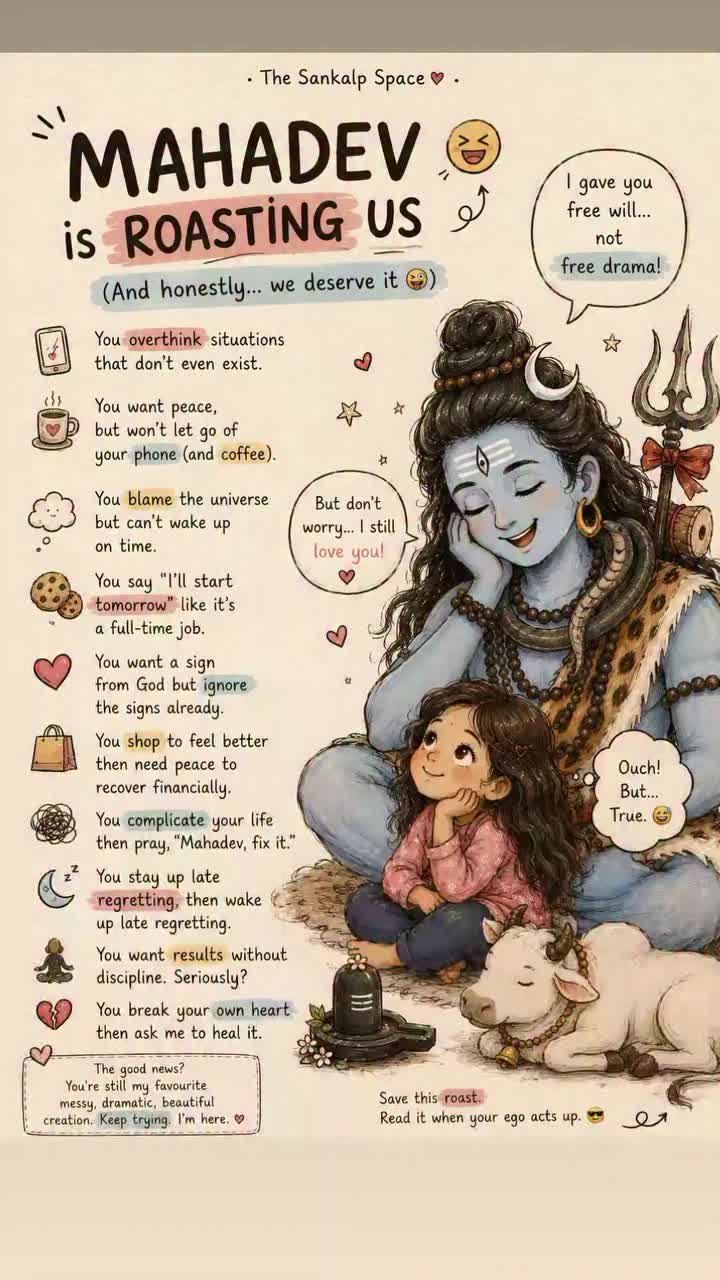 · The Sankalp Space ❤ ·
MAHADEV 😆
is ROASTING US
(And honestly... we deserve it 😜)
I gave you
free will...
not
free drama!
You overthink situations
that don't even exist.
You want peace,
but won't let go of
your phone (and coffee).
You blame the universe
but can't wake up
on time.
But don't
worry... I still
love you!
❤
You say "I'll start
tomorrow" like it's
a full-time job.
You want a sign
from God but ignore
the signs already.
You shop to feel better
then need peace to
recover financially.
Ouch!
But...
True. 😅
You complicate your life
then pray, "Mahadev, fix it."
You stay up late
regretting, then wake
up late regretting.
z z
You want results without
discipline. Seriously?
You break your own heart
then ask me to heal it.
The good news?
You're still my favourite
messy, dramatic, beautiful
creation. Keep trying. I'm here. ❤
Save this roast.
Read it when your ego acts up. 😎